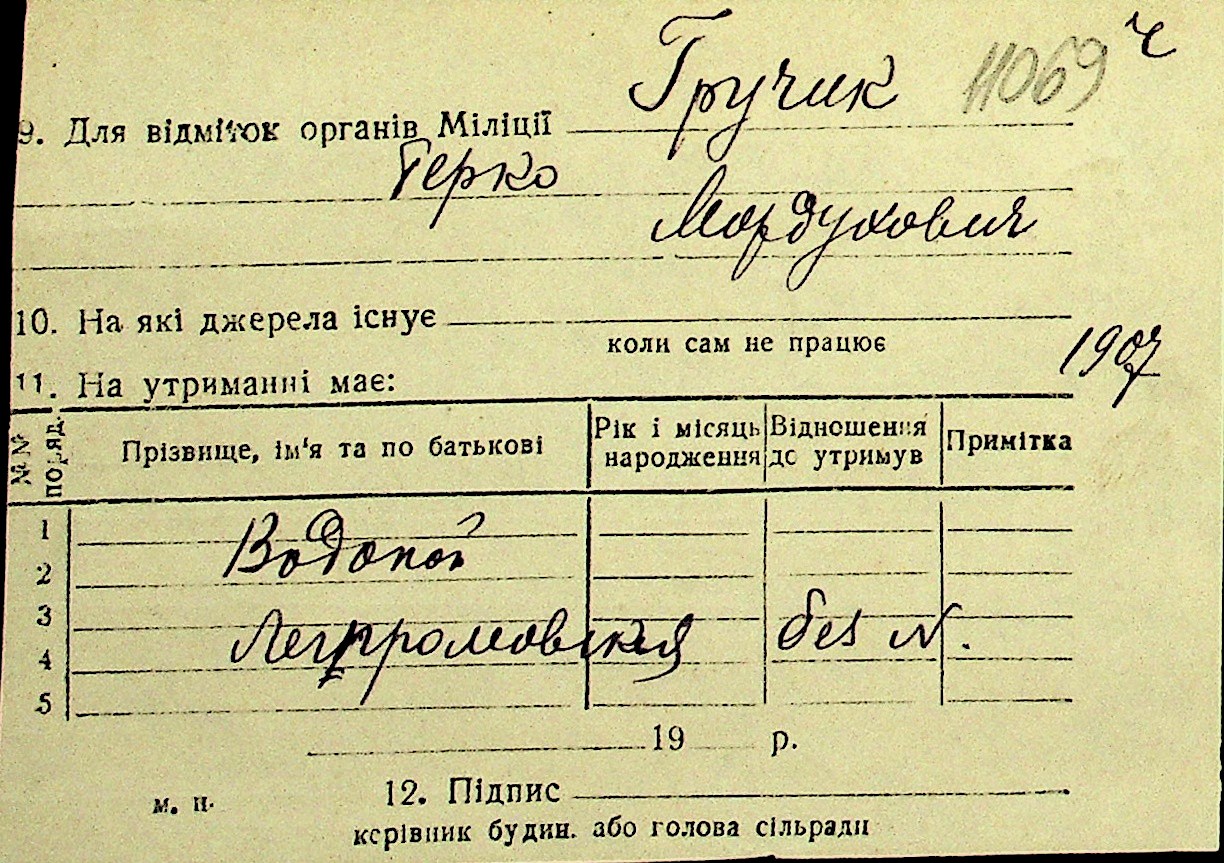 ч
Гручик 11069
9. Для відміток органів Міліції
Герко
Мордухович
10. На які джерела існує
коли сам не працює
1907
11. На утриманні має:
№№ поряд. Прізвище, ім'я та по батькові Рік і місяць народження Відношення до утримув Примітка
1
Водопой
2
3
Легпромовская без N.
4
5
19 р.
м. п. 12. Підпис
керівник будин. або голова сільради